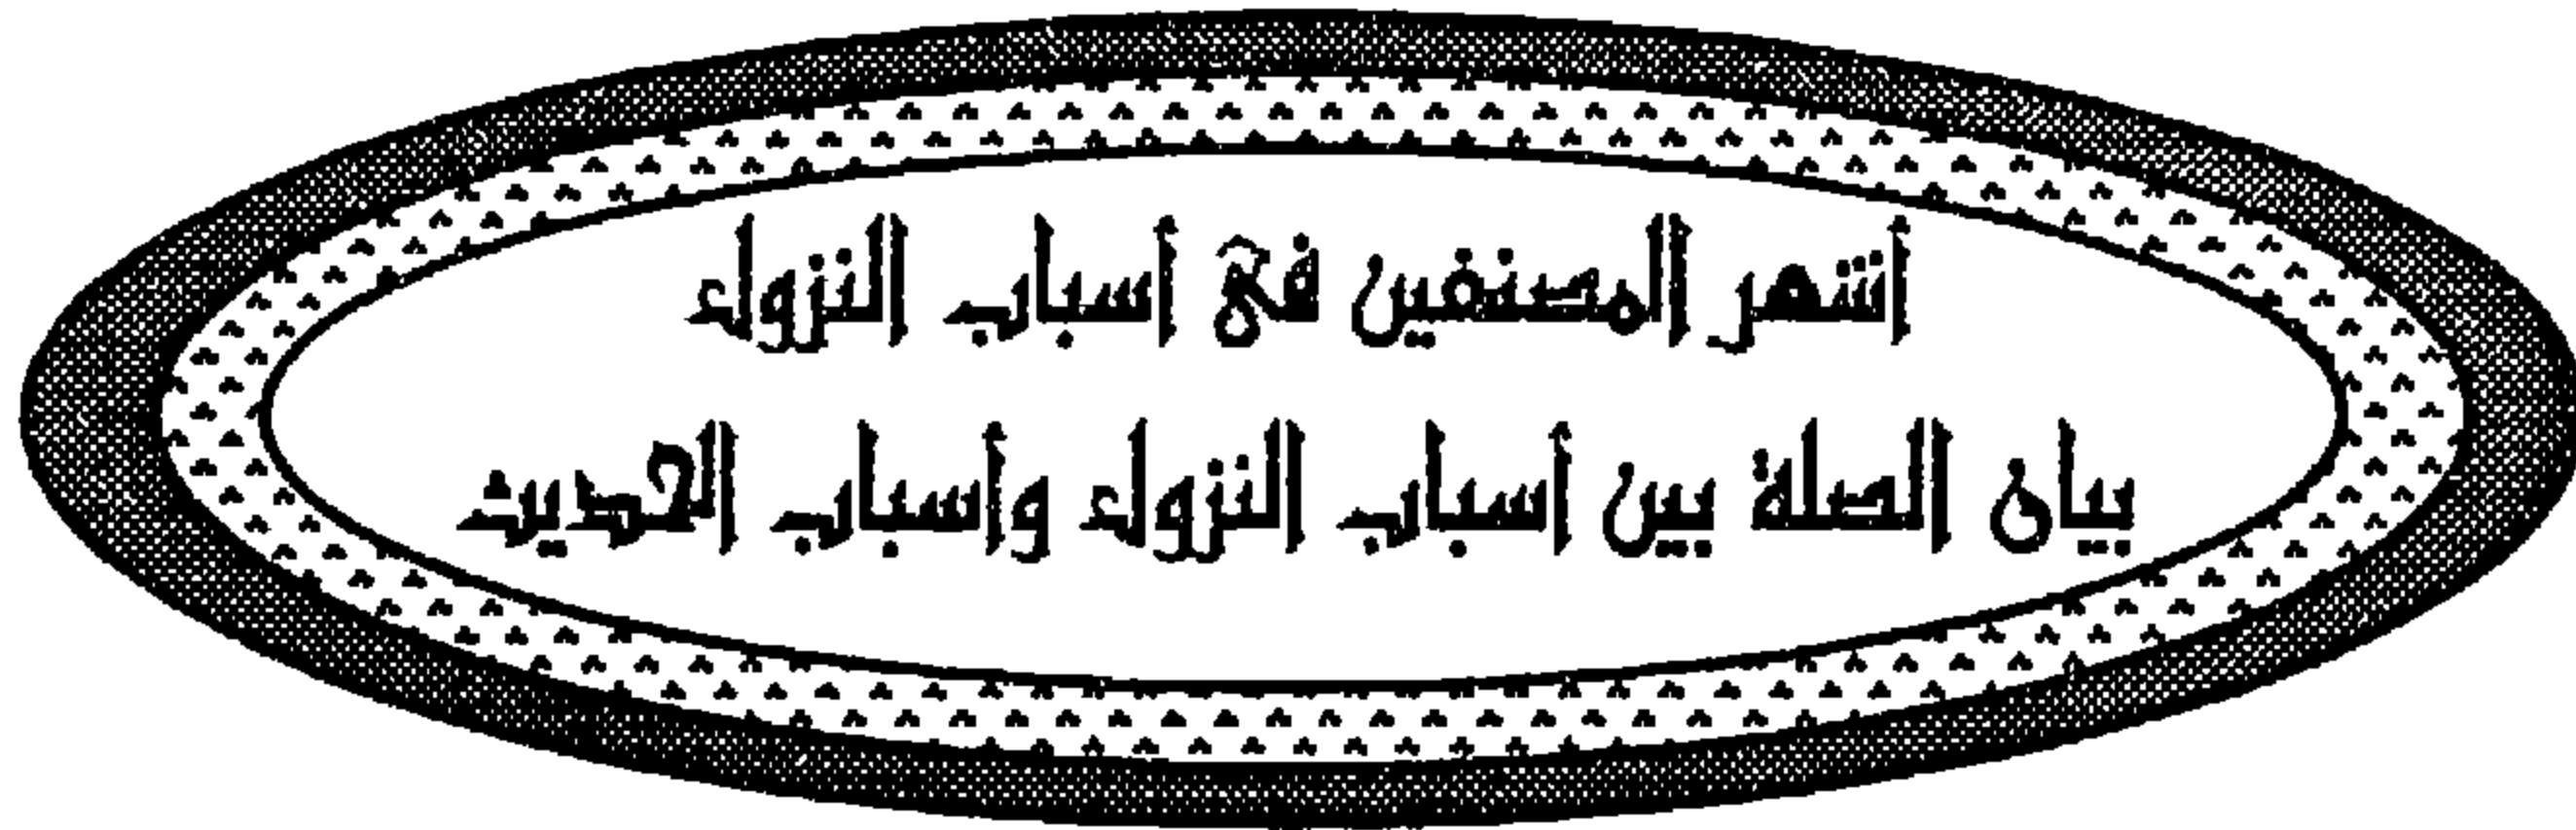 أشهر المصنفين فى أسباب النزول
بيان الصلة بين أسباب النزول وأسباب الحديث